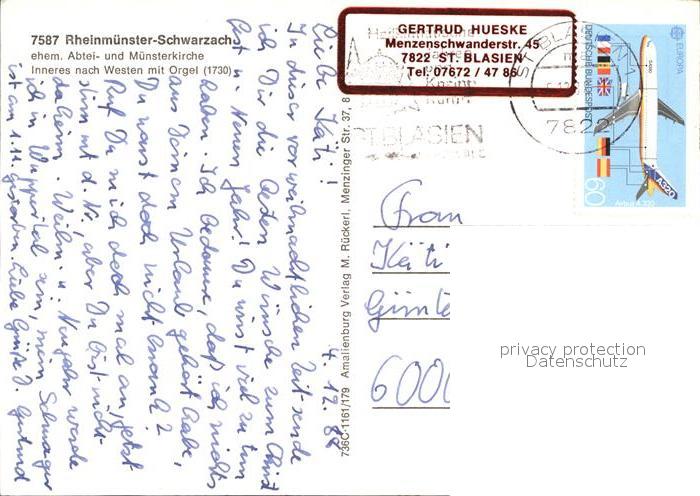 7587 Rheinmünster-Schwarzach
ehem. Abtei- und Münsterkirche
Inneres nach Westen mit Orgel (1730)
GERTRUD HUESKE
Menzenschwanderstr. 45
7822 ST. BLASIEN
Tel. 07672 / 47 86
ST. BLASIEN
7822
DEUTSCHE BUNDESPOST
EUROPA
60
A320
Airbus A 320
4.12.88
Liebe Käti!
In dieser vorweihnachtlichen Zeit sende
ich Dir die Wünsche zum Christ
fest u. Neuen Jahr! Du wirst viel zu tun
haben. Ich bedaure, daß ich nichts
aus Deinem Urlaub gehört habe,
Du warst doch nicht krank?
Ruf Du mich doch mal an, jetzt
stimmt d. Nr, aber Du bist nicht
daheim. Weihn. u. Neujahr werde
ich in Wuppertal sein, mein Schwager
ist am 1.11. gestorben. Liebe Grüße D. Gertrud
736C-1161/179 Amalienburg Verlag M. Rückerl, Menzinger Str. 37, 8
Frau
Käti
Günte
6000
privacy protection
Datenschutz